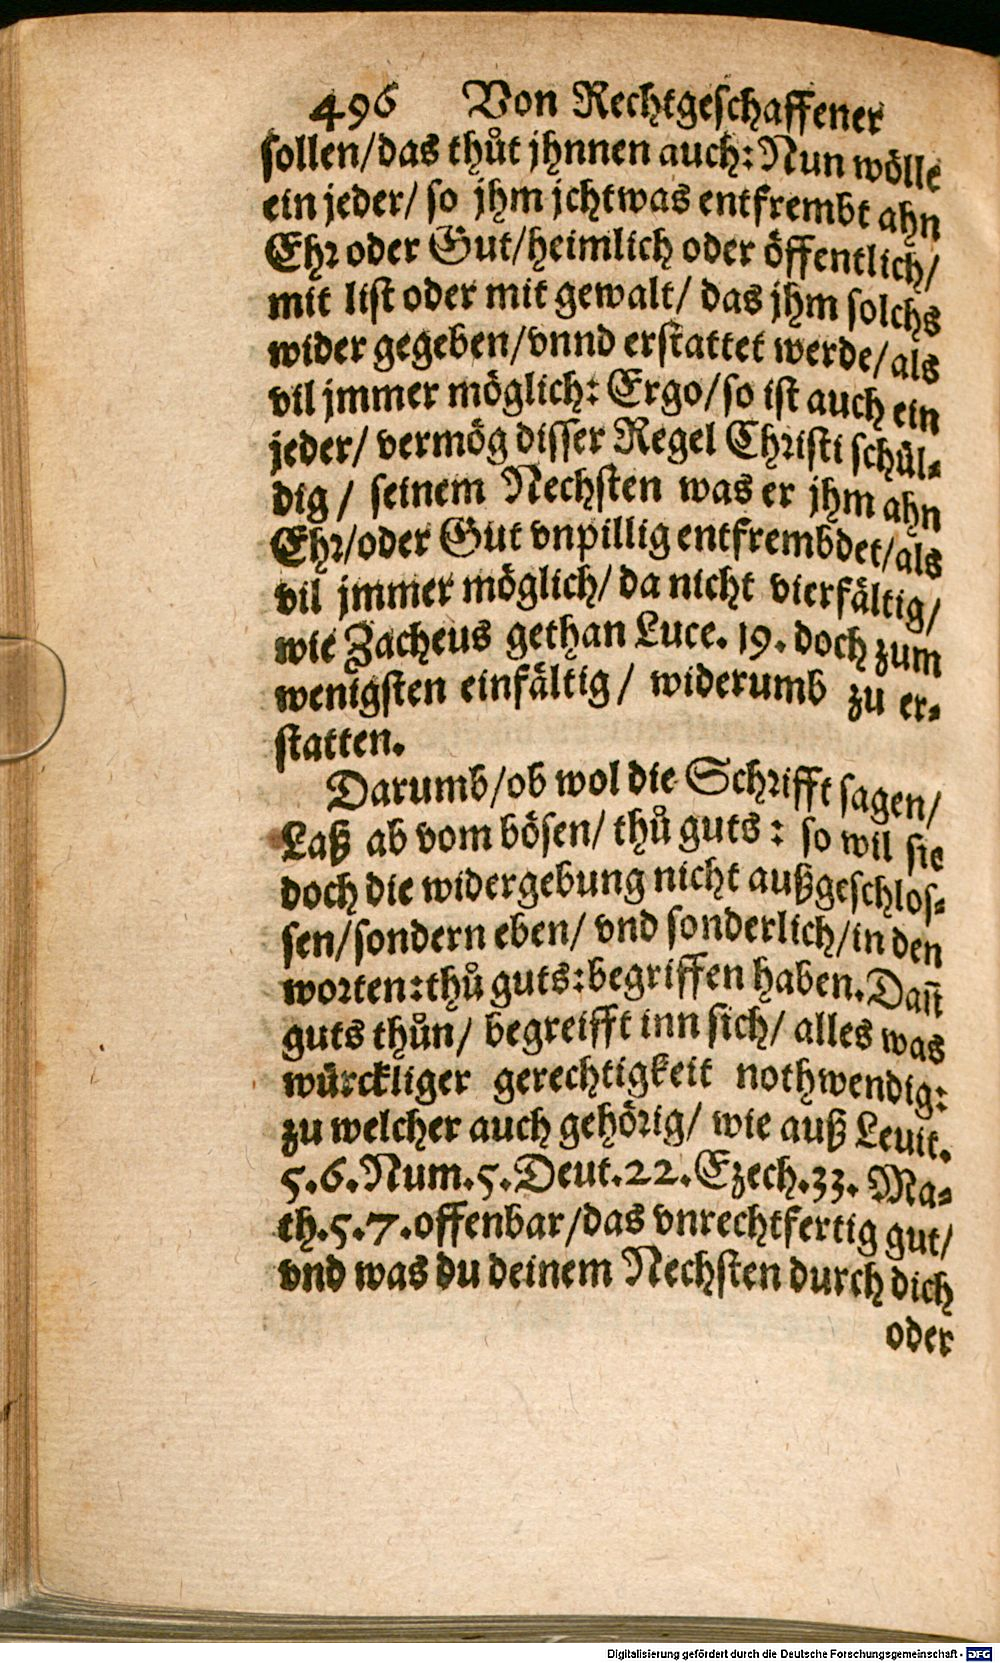 496 Von Rechtgeschaffener
sollen/das thůt jhnnen auch: Nun wölle
ein jeder/ so jhm jchtwas entfrembt ahn
Ehr oder Gut/heimlich oder öffentlich/
mit list oder mit gewalt/ das jhm solchs
wider gegeben/vnnd erstattet werde/als
vil jmmer möglich: Ergo/so ist auch ein
jeder/ vermög disser Regel Christi schül⸗
dig/ seinem Nechsten was er jhm ahn
Ehr/oder Gut vnpillig entfrembdet/als
vil jmmer möglich/ da nicht vierfältig/
wie Zacheus gethan Luce. 19. doch zum
wenigsten einfältig/ widerumb zu er⸗
statten.
Darumb/ob wol die Schrifft sagen/
Laß ab vom bösen/ thů guts: so wil sie
doch die widergebung nicht außgeschlos⸗
sen/sondern eben/ vnd sonderlich/in den
worten:thů guts:begriffen haben. Dañ
guts thůn/ begreifft inn sich/ alles was
würckliger gerechtigkeit nothwendig:
zu welcher auch gehörig/ wie auß Leuit.
5.6. Num.5. Deut.22. Ezech.33. Ma⸗
th.5.7.offenbar/das vnrechtfertig gut/
vnd was du deinem Nechsten durch dich
oder
Digitalisierung gefördert durch die Deutsche Forschungsgemeinschaft - DFG